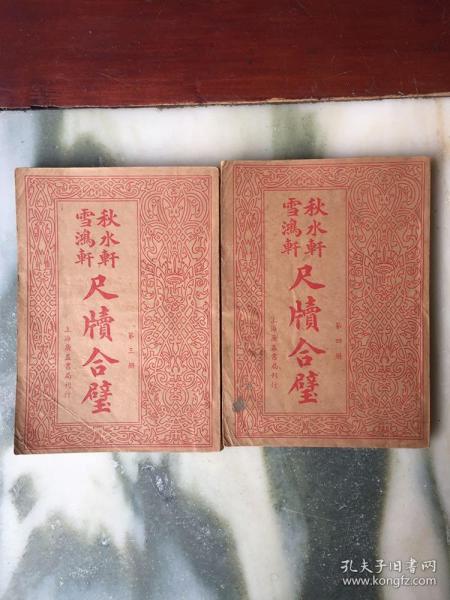 秋水軒
雪鴻軒
尺牘合璧
第三册
上海廣益書局刊行
秋水軒
雪鴻軒
尺牘合璧
第四册
上海廣益書局刊行
孔夫子旧书网
www.kongfz.com